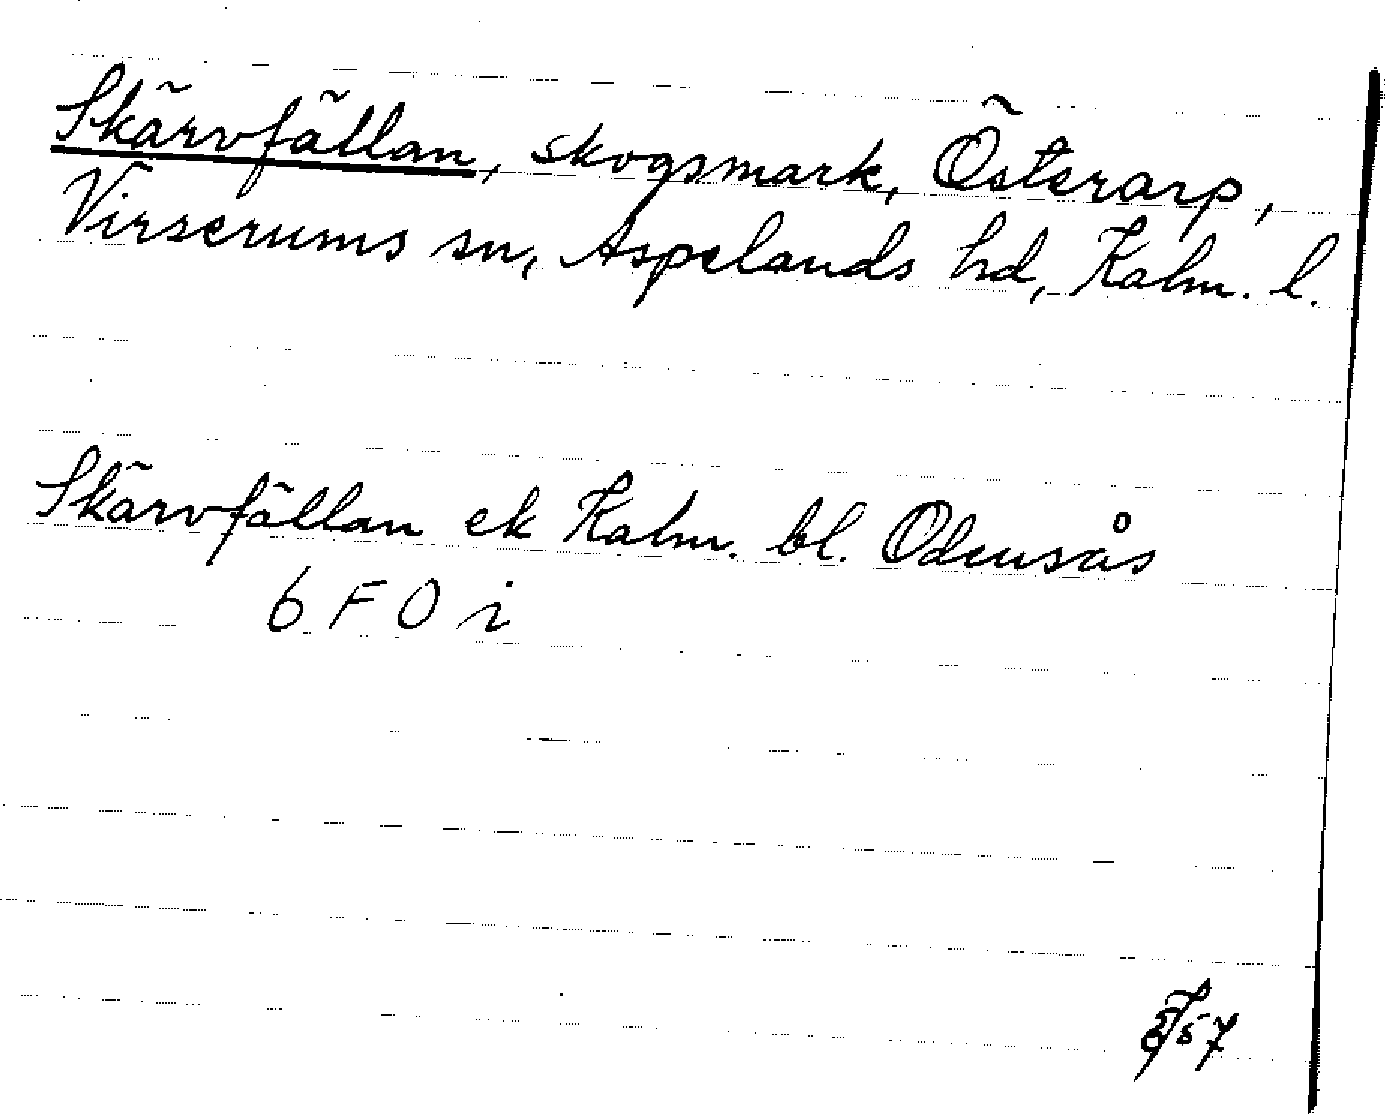 Skärvfällan, skogsmark, Österarp,
Virserums sn, Aspelands hd, Kalm. l.
Skärvfällan ek Kalm. bl. Odensås
6 F O i
57